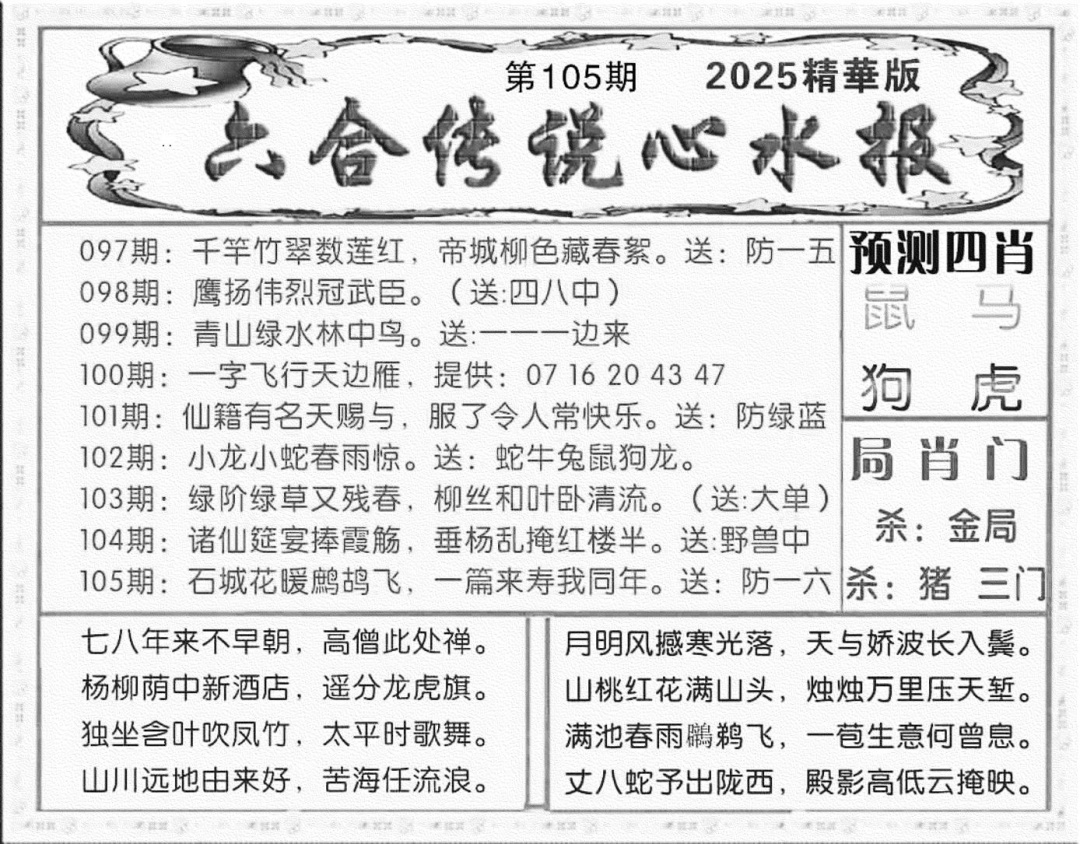 第105期 2025精華版
六合传说心水报
097期：千竿竹翠数莲红，帝城柳色藏春絮。送：防一五
098期：鹰扬伟烈冠武臣。（送:四八中）
099期：青山绿水林中鸟。送:一一一边来
100期：一字飞行天边雁，提供：07 16 20 43 47
101期：仙籍有名天赐与，服了令人常快乐。送：防绿蓝
102期：小龙小蛇春雨惊。送：蛇牛兔鼠狗龙。
103期：绿阶绿草又残春，柳丝和叶卧清流。（送:大单）
104期：诸仙筵宴捧霞觞，垂杨乱掩红楼半。送:野兽中
105期：石城花暖鹧鸪飞，一篇来寿我同年。送：防一六
预测四肖
鼠 马
狗 虎
局肖门
杀：金局
杀：猪 三门
七八年来不早朝，高僧此处禅。
杨柳荫中新酒店，遥分龙虎旗。
独坐含叶吹凤竹，太平时歌舞。
山川远地由来好，苦海任流浪。
月明风撼寒光落，天与娇波长入鬓。
山桃红花满山头，烛烛万里压天堑。
满池春雨鸊鹈飞，一苞生意何曾息。
丈八蛇予出陇西，殿影高低云掩映。